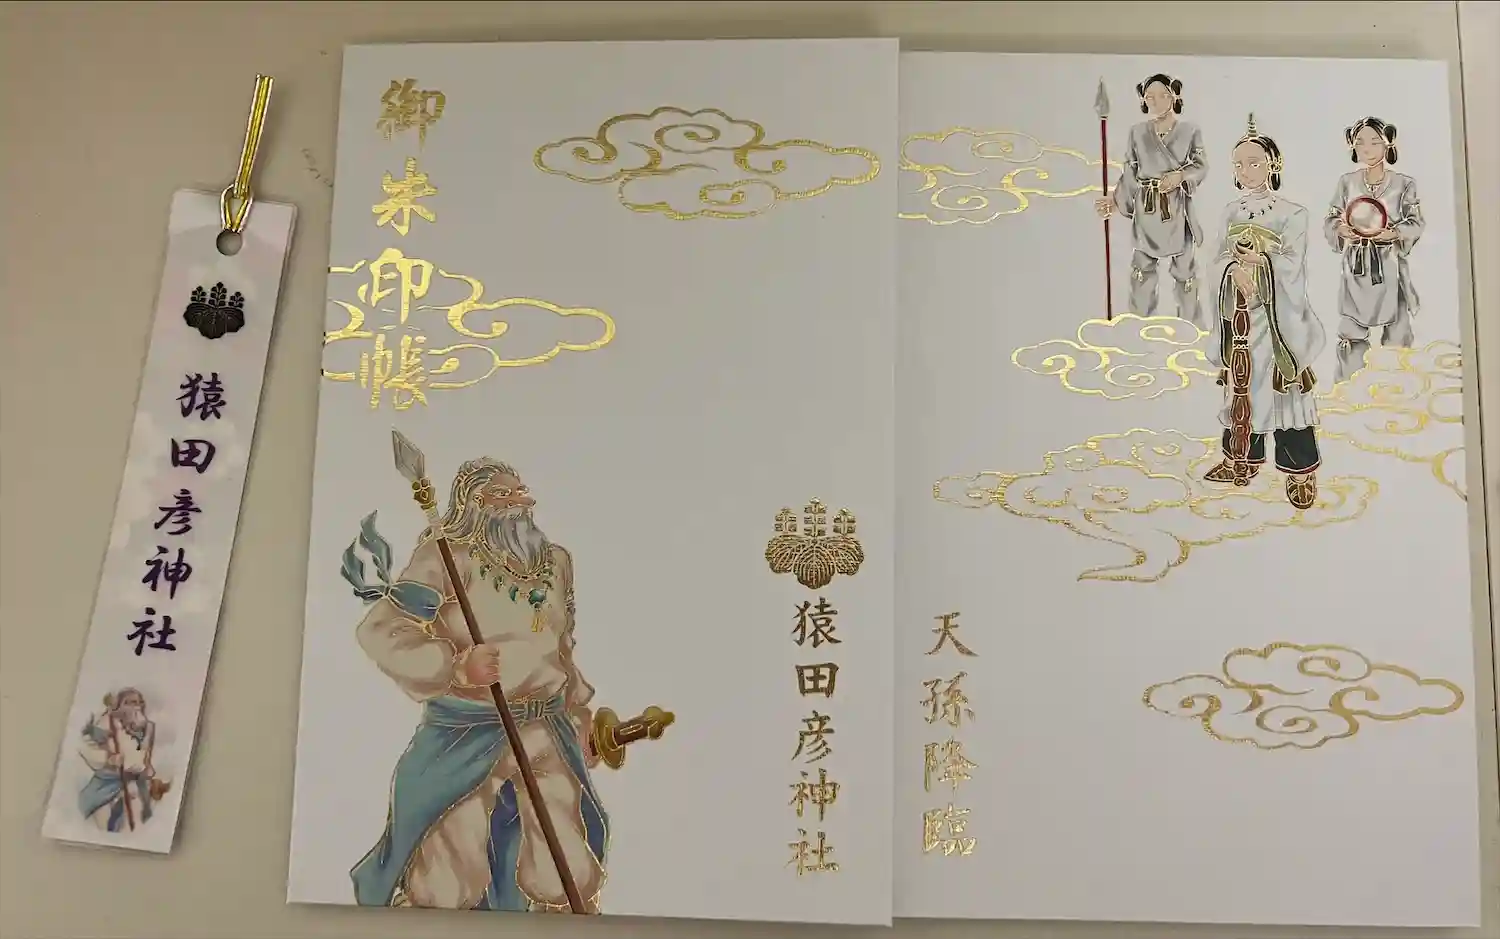 猿田彦神社
御朱印帳
猿田彦神社
天孫降臨